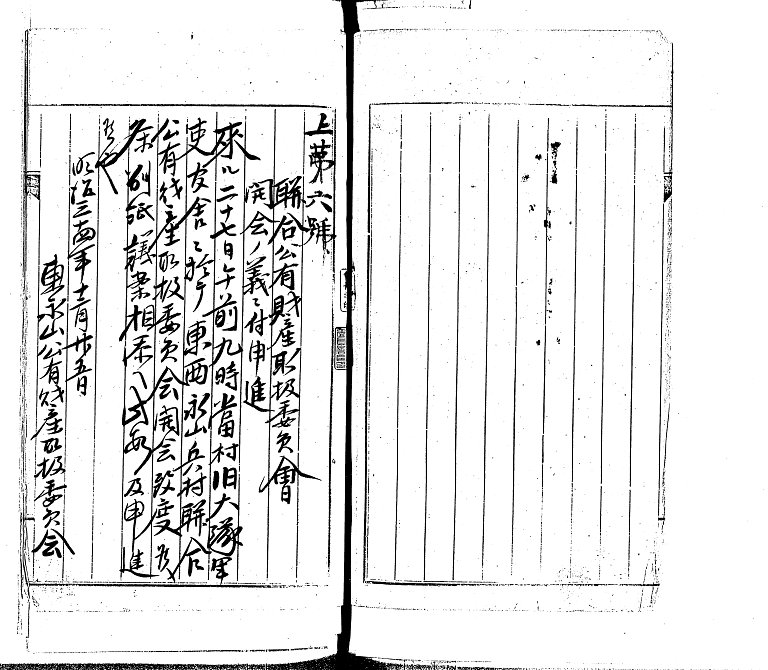 上第六號
聯合公有財産取扱委員會
開会ノ義ニ付申進
來ル二十七日午前九時當村旧大隊
吏友舍ニ於テ東西永山兵村聯合
公有財産取扱委員会開会致度
条別紙議案相添へ此如及申進
候也
明治三十四年十二月廿五日
東永山公有財産取扱委員会